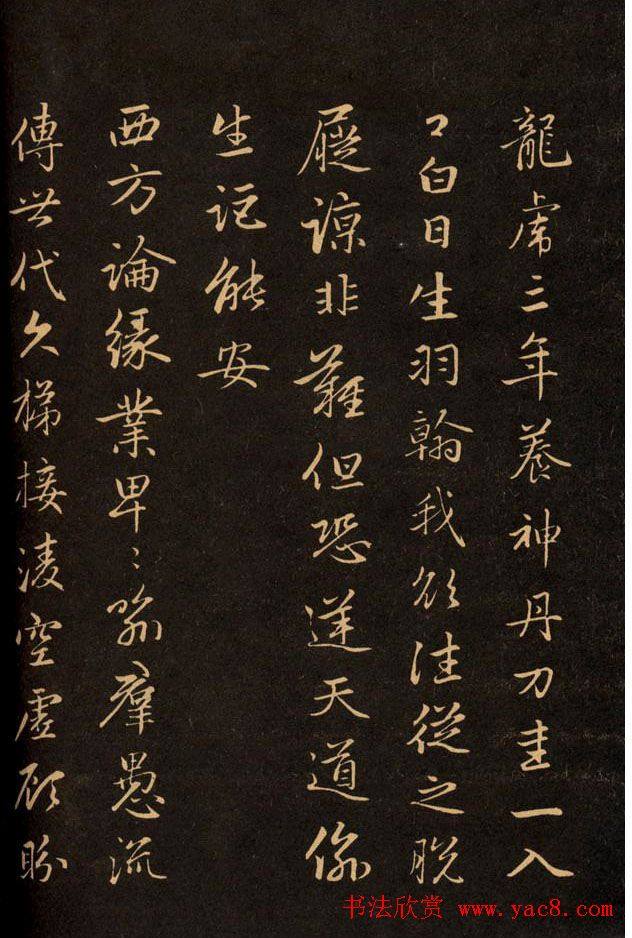 龍虎三年養神丹刀圭一入
口白日生羽翰我欲往從之脫
屣諒非難但恐逆天道偷
生詎能安
西方論緣業卑〻喻羣愚流
傳世代久梯接淩空虛顧盼
书法欣赏 www.yac8.com